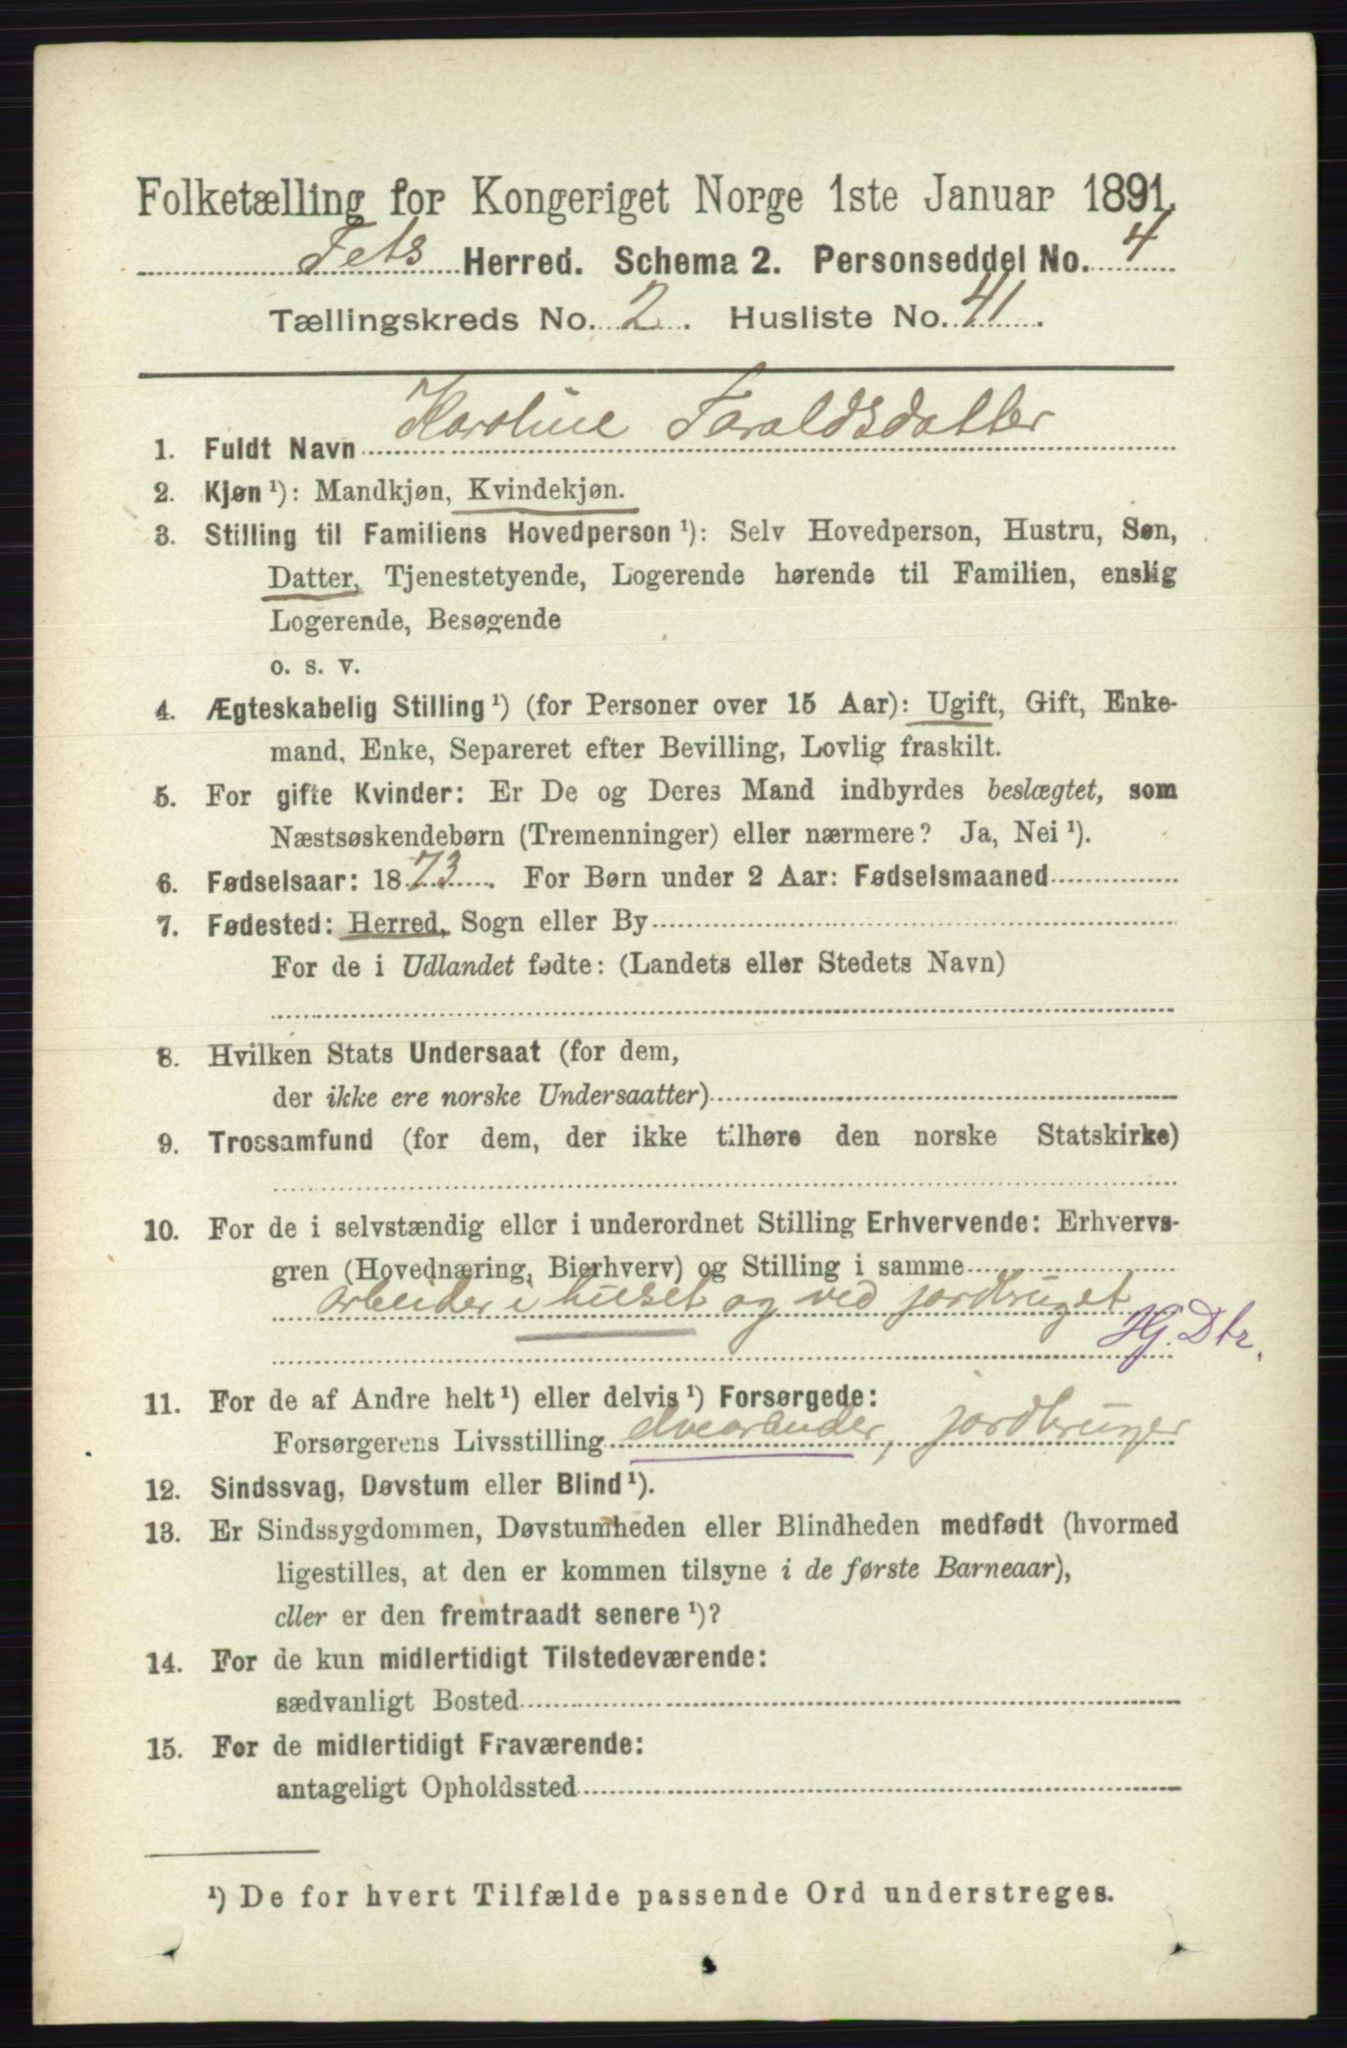 Folketælling for Kongeriget Norge 1ste Januar 1891.
Fets Herred. Schema 2. Personseddel No. 4
Tællingskreds No. 2. Husliste No. 41.
1. Fuldt Navn Karoline Taraldsdatter
2. Kjøn ¹): Mandkjøn, Kvindekjøn.
3. Stilling til Familiens Hovedperson ¹): Selv Hovedperson, Hustru, Søn,
Datter, Tjenestetyende, Logerende hørende til Familien, enslig
Logerende, Besøgende
o. s. v.
4. Ægteskabelig Stilling ¹) (for Personer over 15 Aar): Ugift, Gift, Enke-
mand, Enke, Separeret efter Bevilling, Lovlig fraskilt.
5. For gifte Kvinder: Er De og Deres Mand indbyrdes beslægtet, som
Næstsøskendebørn (Tremenninger) eller nærmere? Ja, Nei ¹).
6. Fødselsaar: 1873. For Børn under 2 Aar: Fødselsmaaned
7. Fødested: Herred, Sogn eller By
For de i Udlandet fødte: (Landets eller Stedets Navn)
8. Hvilken Stats Undersaat (for dem,
der ikke ere norske Undersaatter)
9. Trossamfund (for dem, der ikke tilhøre den norske Statskirke)
10. For de i selvstændig eller i underordnet Stilling Erhvervende: Erhvervs-
gren (Hovednæring, Bierhverv) og Stilling i samme
arbeider i huset og ved jordbruget
Hj. Dtr.
11. For de af Andre helt ¹) eller delvis ¹) Forsørgede:
Forsørgerens Livsstilling elvearbeider, jordbruger
12. Sindssvag, Døvstum eller Blind ¹).
13. Er Sindssygdommen, Døvstumheden eller Blindheden medfødt (hvormed
ligestilles, at den er kommen tilsyne i de første Barneaar),
eller er den fremtraadt senere ¹)?
14. For de kun midlertidigt Tilstedeværende:
sædvanligt Bosted
15. For de midlertidigt Fraværende:
antageligt Opholdssted
¹) De for hvert Tilfælde passende Ord understreges.